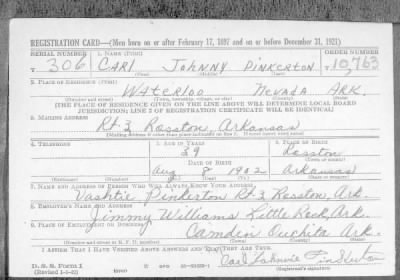 REGISTRATION CARD—(Men born on or after February 17, 1897 and on or before December 31, 1921)
SERIAL NUMBER 1. NAME (Print) ORDER NUMBER
T 306 CARl JOHNNY PINKERTON T 10,763
(First) (Middle) (Last)
2. PLACE OF RESIDENCE (Print)
WATERLOO NEVADA ARK.
(Number and street) (Town, township, village, or city) (County) (State)
[THE PLACE OF RESIDENCE GIVEN ON THE LINE ABOVE WILL DETERMINE LOCAL BOARD
JURISDICTION; LINE 2 OF REGISTRATION CERTIFICATE WILL BE IDENTICAL]
3. MAILING ADDRESS
Rt. 3 Rosston, Arkansas
[Mailing address if other than place indicated on line 2. If same, insert word same]
4. TELEPHONE 5. AGE IN YEARS 6. PLACE OF BIRTH
39 Rosston
DATE OF BIRTH (Town or county)
Aug 8 1902 Arkansas
(Exchange) (Number) (Mo.) (Day) (Yr.) (State or country)
7. NAME AND ADDRESS OF PERSON WHO WILL ALWAYS KNOW YOUR ADDRESS
Vashtie Pinkerton Rt. 3 Rosston, Ark.
8. EMPLOYER'S NAME AND ADDRESS
Jimmy Williams Little Rock, Ark.
9. PLACE OF EMPLOYMENT OR BUSINESS
Camden Ouchita Ark.
(Number and street or R. F. D. number) (Town) (County) (State)
I AFFIRM THAT I HAVE VERIFIED ABOVE ANSWERS AND THAT THEY ARE TRUE.
D. S. S. Form 1
(Revised 1-1-42) (over) Carl Johnnie Pinkerton
(Registrant's signature)